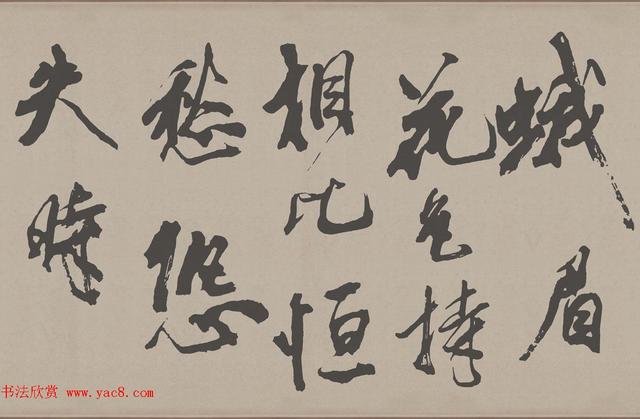 蛾眉
花
相比恒
愁
失時
书法欣赏 www.yac8.com